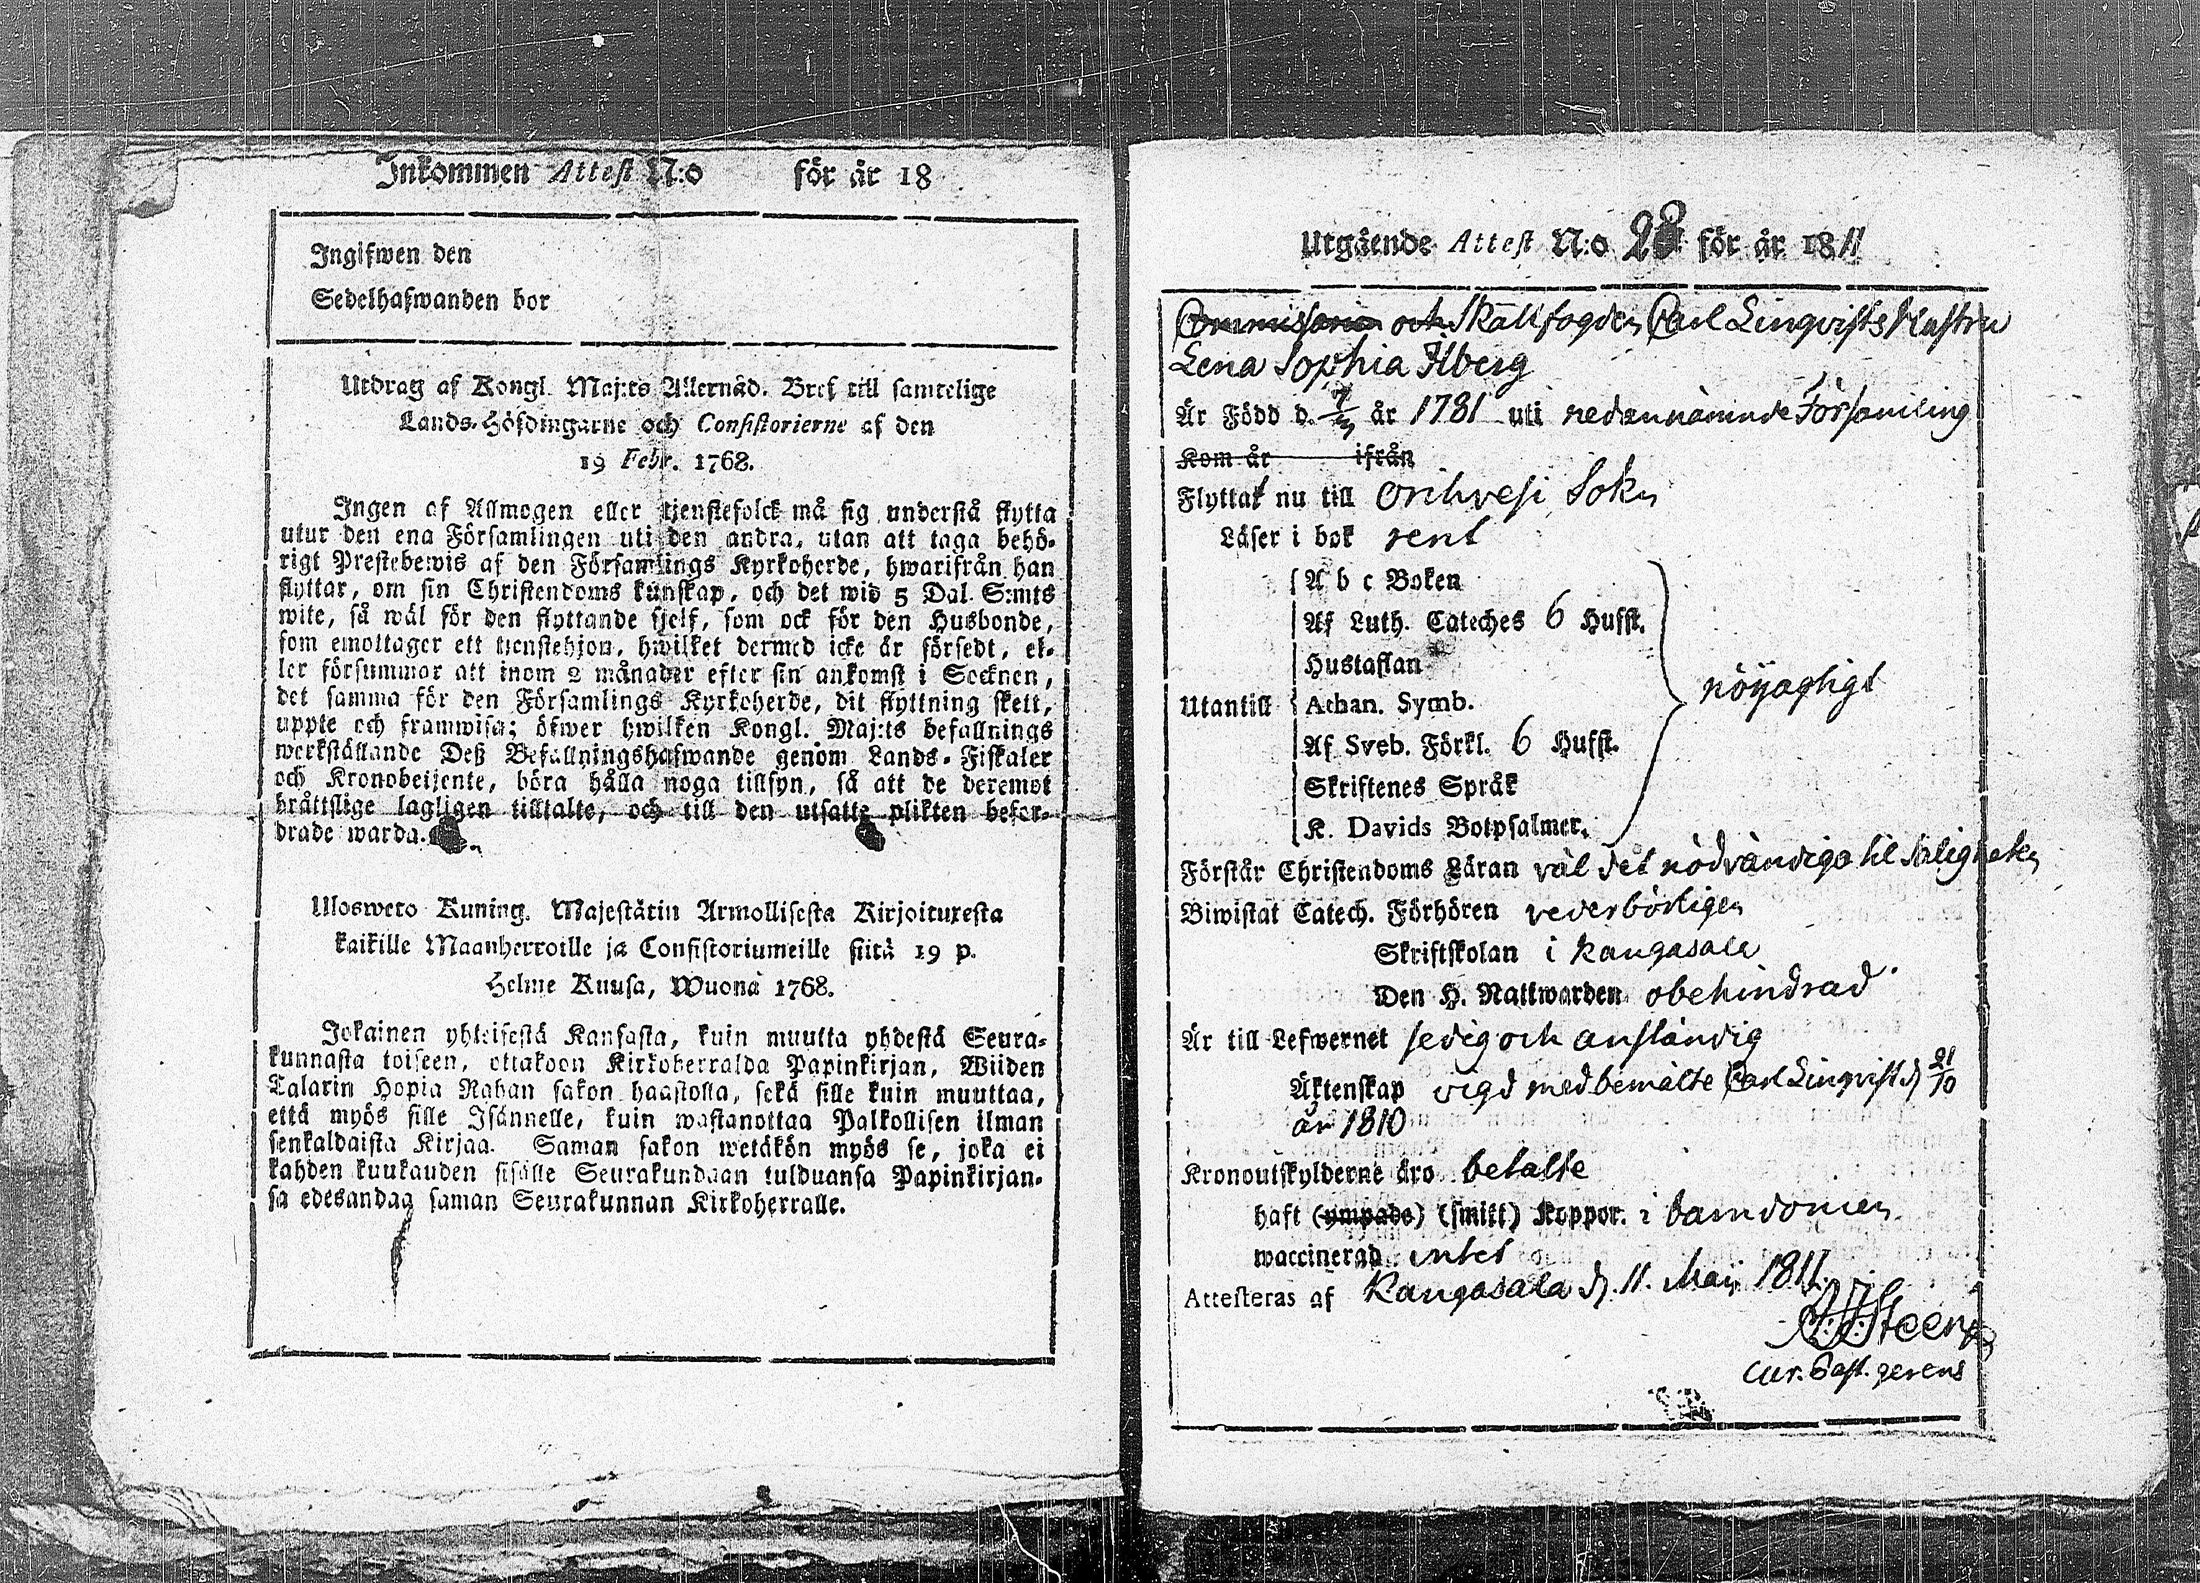 Inkommen Attest N:o för år 18
Ingifwen den
Sedelhafwanden bor
Utdrag af Kongl. Maj:ts Allernåd. Bref till samtelige
Lands-Höfdingarne och Consistorierne af den
19 Febr. 1768.
Ingen af Allmogen eller tjenstefolck må sig understå flytta
utur den ena Församlingen uti den andra, utan att taga behö-
rigt Prestebewis af den Församlings Kyrkoherde, hwarifrån han
flyttar, om sin Christendoms kunskap, och det wid 5 Dal. S:mts
wite, så wäl för den flyttande sjelf, som ock för den Husbonde,
som emottager ett tjenstehjon, hwilket dermed icke är försedt, el-
ler försummar att inom 2 månader efter sin ankomst i Socknen,
det samma för den Församlings Kyrkoherde, dit flyttning skett,
uppte och framwisa; öfwer hwilken Kongl. Maj:ts befallnings
werkställande Deß Befallningshafwande genom Lands-Fiskaler
och Kronobetjente, böra hålla noga tillsyn, så att de deremot
bråttslige lagligen tilltalte, och till den utsatte plikten befor-
drade warda.
Ulosweto Kuning. Majestätin Armollisesta Kirjoituxesta
kaikille Maanherroille ja Consistoriumeille siitä 19 p.
Helme Kuusa, Wuonä 1768.
Jokainen yhteisestä Kansasta, kuin muutta yhdestä Seura-
kunnasta toiseen, ottakoon Kirkoherralda Papinkirjan, Wiiden
Talarin Hopia Rahan sakon haastolla, sekä sille kuin muuttaa,
että myös sille Isännelle, kuin wastanottaa Palkollisen ilman
senkaldaista Kirjaa. Saman sakon wetäkön myös se, joka ei
kahden kuukauden sisälle Seurakundaan tulduansa Papinkirjan-
sa edesandaa saman Seurakunnan Kirkoherralle.
Utgående Attest N:o 28 för år 1811
Commissarien och Skallfogden Carl Linqvists Hustru
Lena Sophia Alberg
Är Född d. år 1781 uti nedannämnde Församling
Kom år ifrån
Flyttat nu till Orihvesi Sokn
Läser i bok rent
A b c Boken
Af Luth. Cateches 6 Hufst.
Hustaflan
Utantill Athan. Symb.
Af Sveb. Förkl. 6 Hufst.
Skriftenes Språk
K. Davids Botpsalmer.
nöyagligt
Förstår Christendoms Läran väl det nödvändiga til Saligheten
Biwistat Catech. Förhören vederbörligen
Skriftskolan i Kangasala
Den H. Nattwarden obehindrad
Är till Lefwernet sedig och anständig
Äktenskap vigd med bemälte Carl Linqvist d 21/10
år 1810
Kronoutskylderne äro betalte
haft (ympade) (smitt) Koppor. i barndomen
waccinerad intet
Attesteras af Kangasala d. 11. Maij 1811.
Steen
cur. Past. gerens